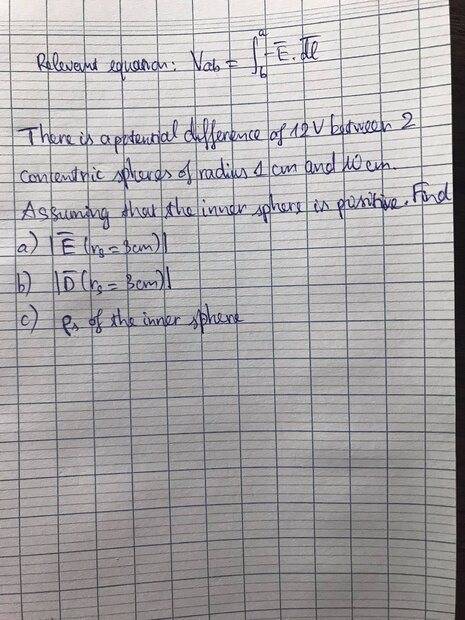 Relevant equation: Vab = ∫_b^a E̅ . d̅l̅
There is a potential difference of 12V between 2
concentric spheres of radius 1 cm and 10 cm.
Assuming that the inner sphere is positive. Find
a) |E̅ (rs = 3cm)|
b) |D̅ (rs = 3cm)|
c) ρs of the inner sphere